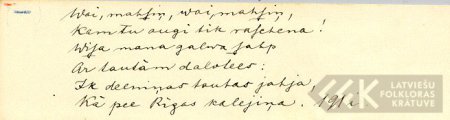 Wai, matsin, wai, matsin,
Kam tu augi tik raschena!
Wisa mana galwa sahp
Ar tautām dalotees:
Ik deeniņas tautas jahja,
Kā pee Rīgas kalējiņa. 191
LATVIEŠU
FOLKLORAS
KRĀTUVE